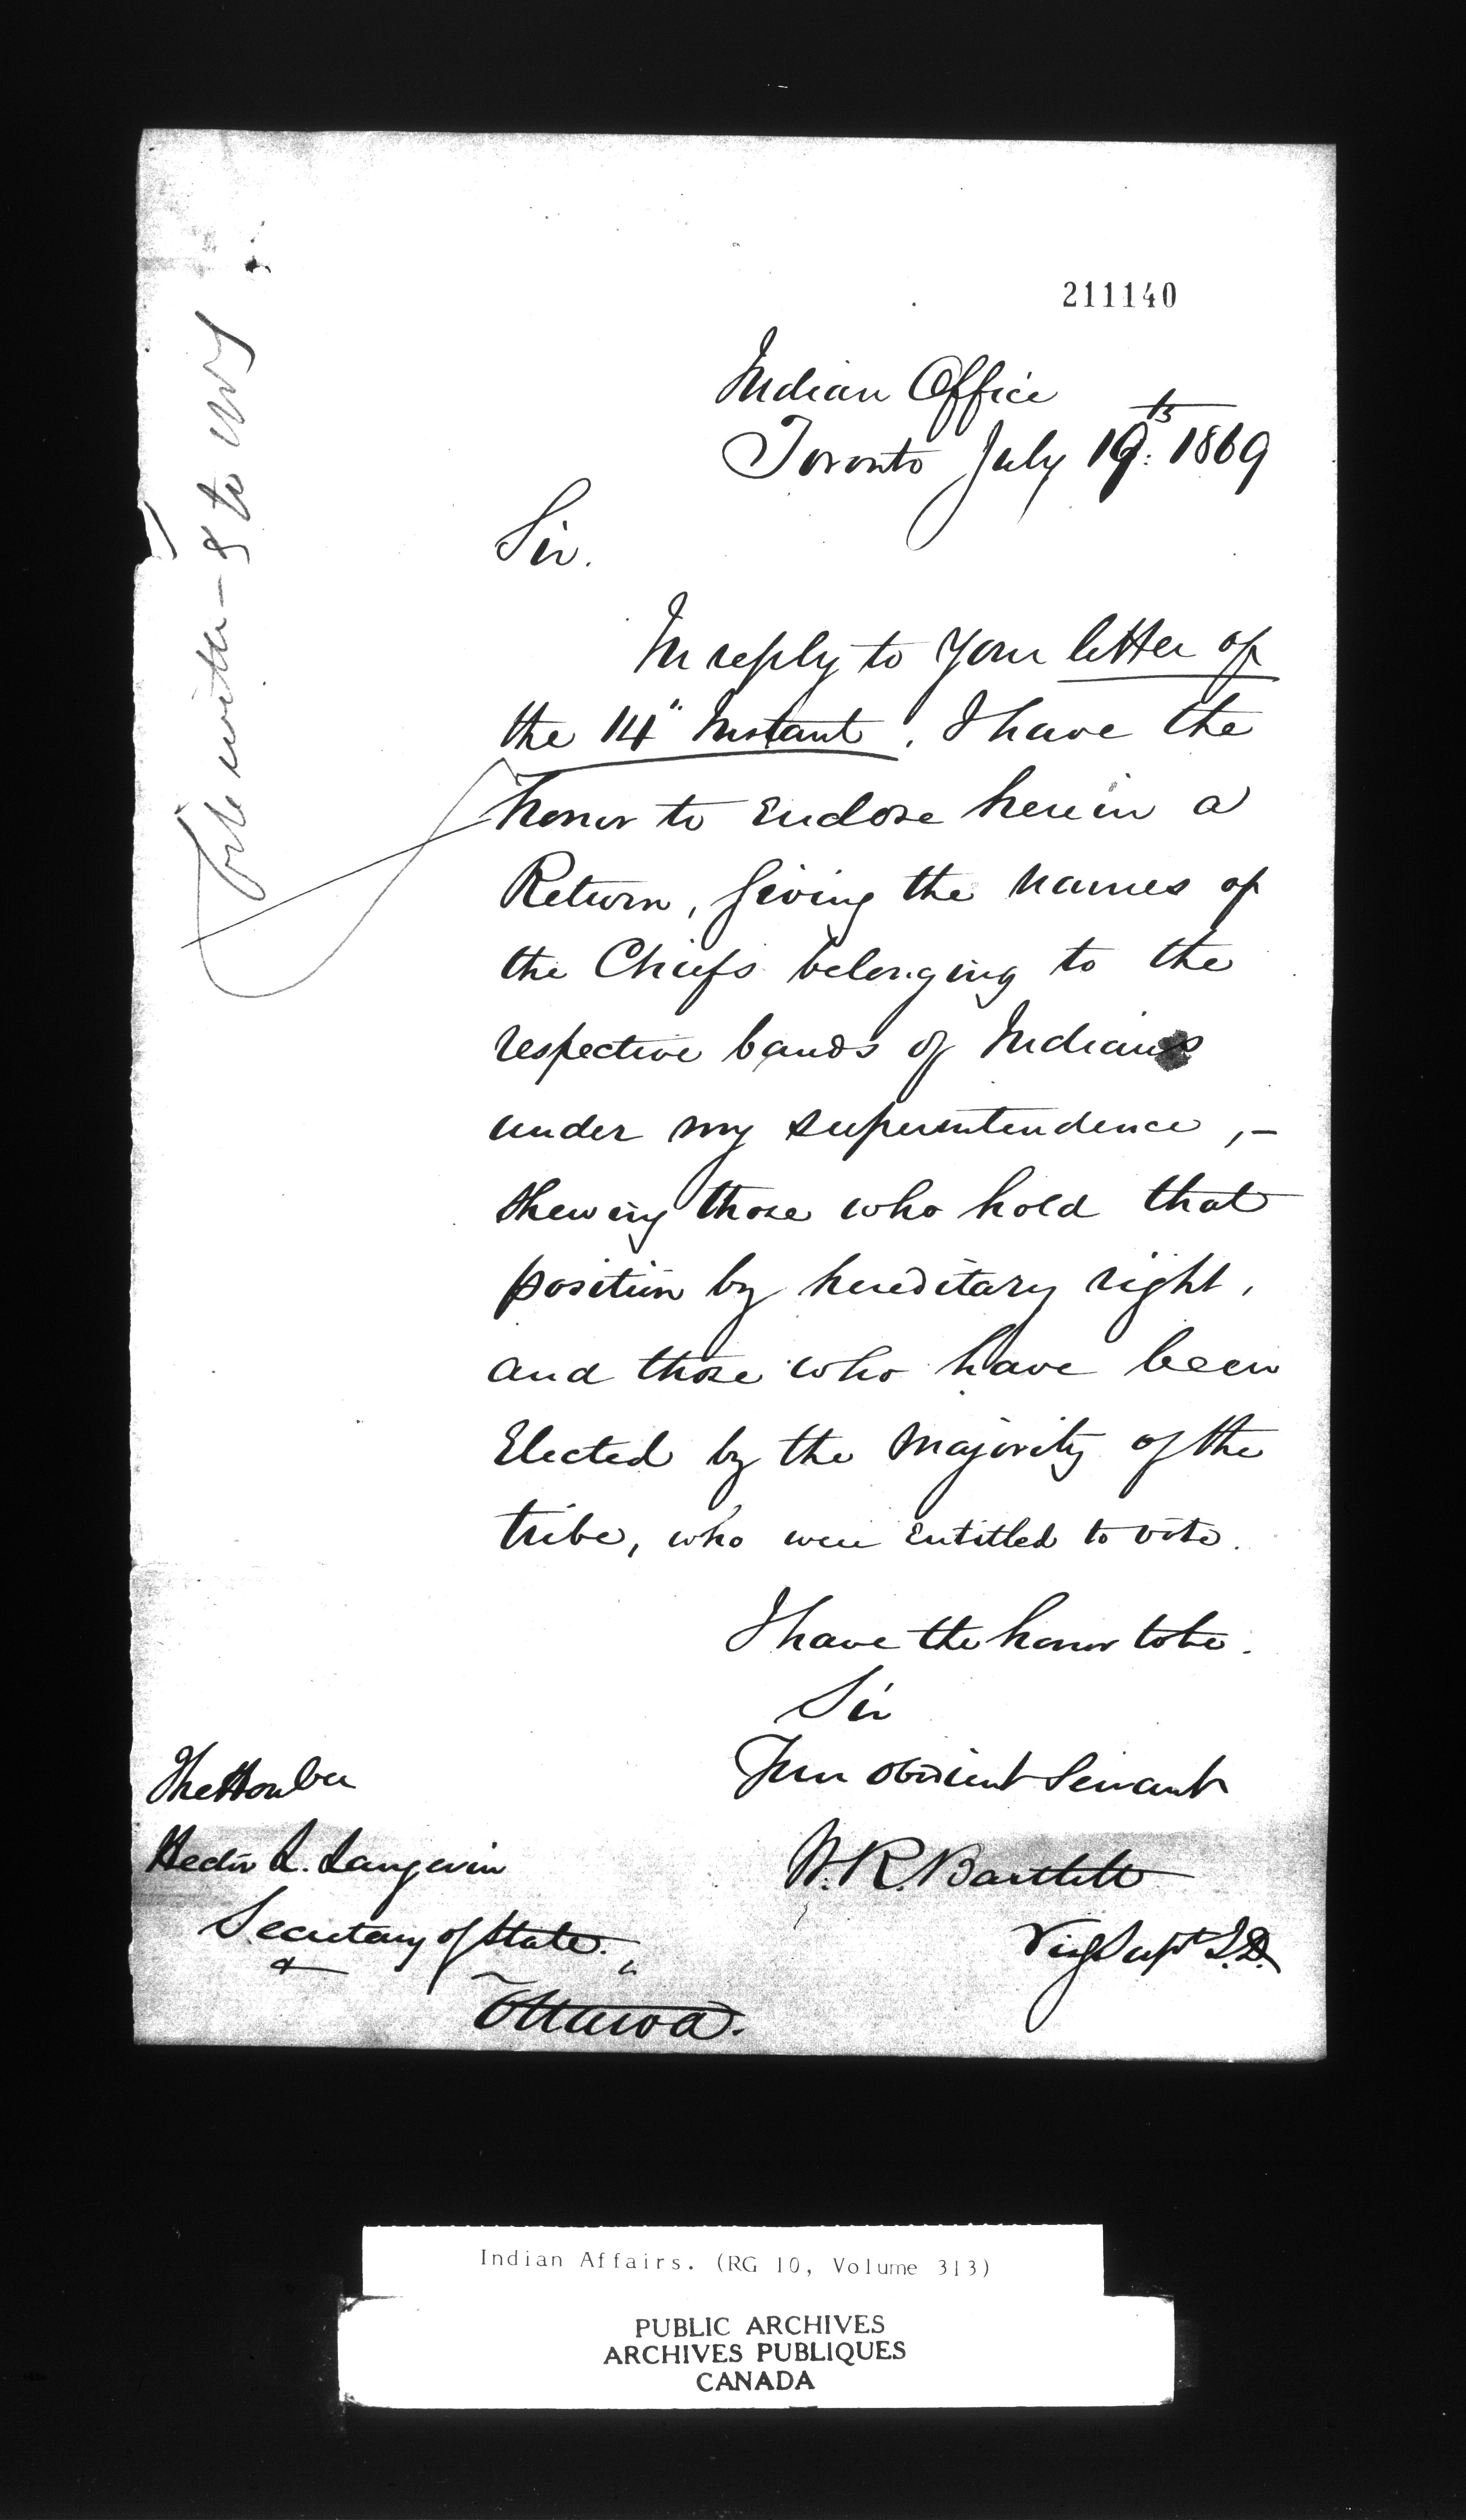 211140
Indian Office
Toronto July 19th: 1869
Sir.
In reply to your letter of
the 14" Instant, I have the
honor to Enclose herein a
Return, giving the names of
the Chiefs belonging to the
respective bands of Indians
under my superintendence, –
shewing those who hold that
position by hereditary right,
and those who have been
Elected by the Majority of the
tribe, who were Entitled to vote.
I have the honor to be.
Sir
Your obedient Servant
W. R. Bartlett
Vig Supt I.D.
The Honble
Hector L. Langevin
Secretary of State.
&
"
Ottawa.
File with – 8 to
Indian Affairs. (RG 10, Volume 313)
PUBLIC ARCHIVES
ARCHIVES PUBLIQUES
CANADA